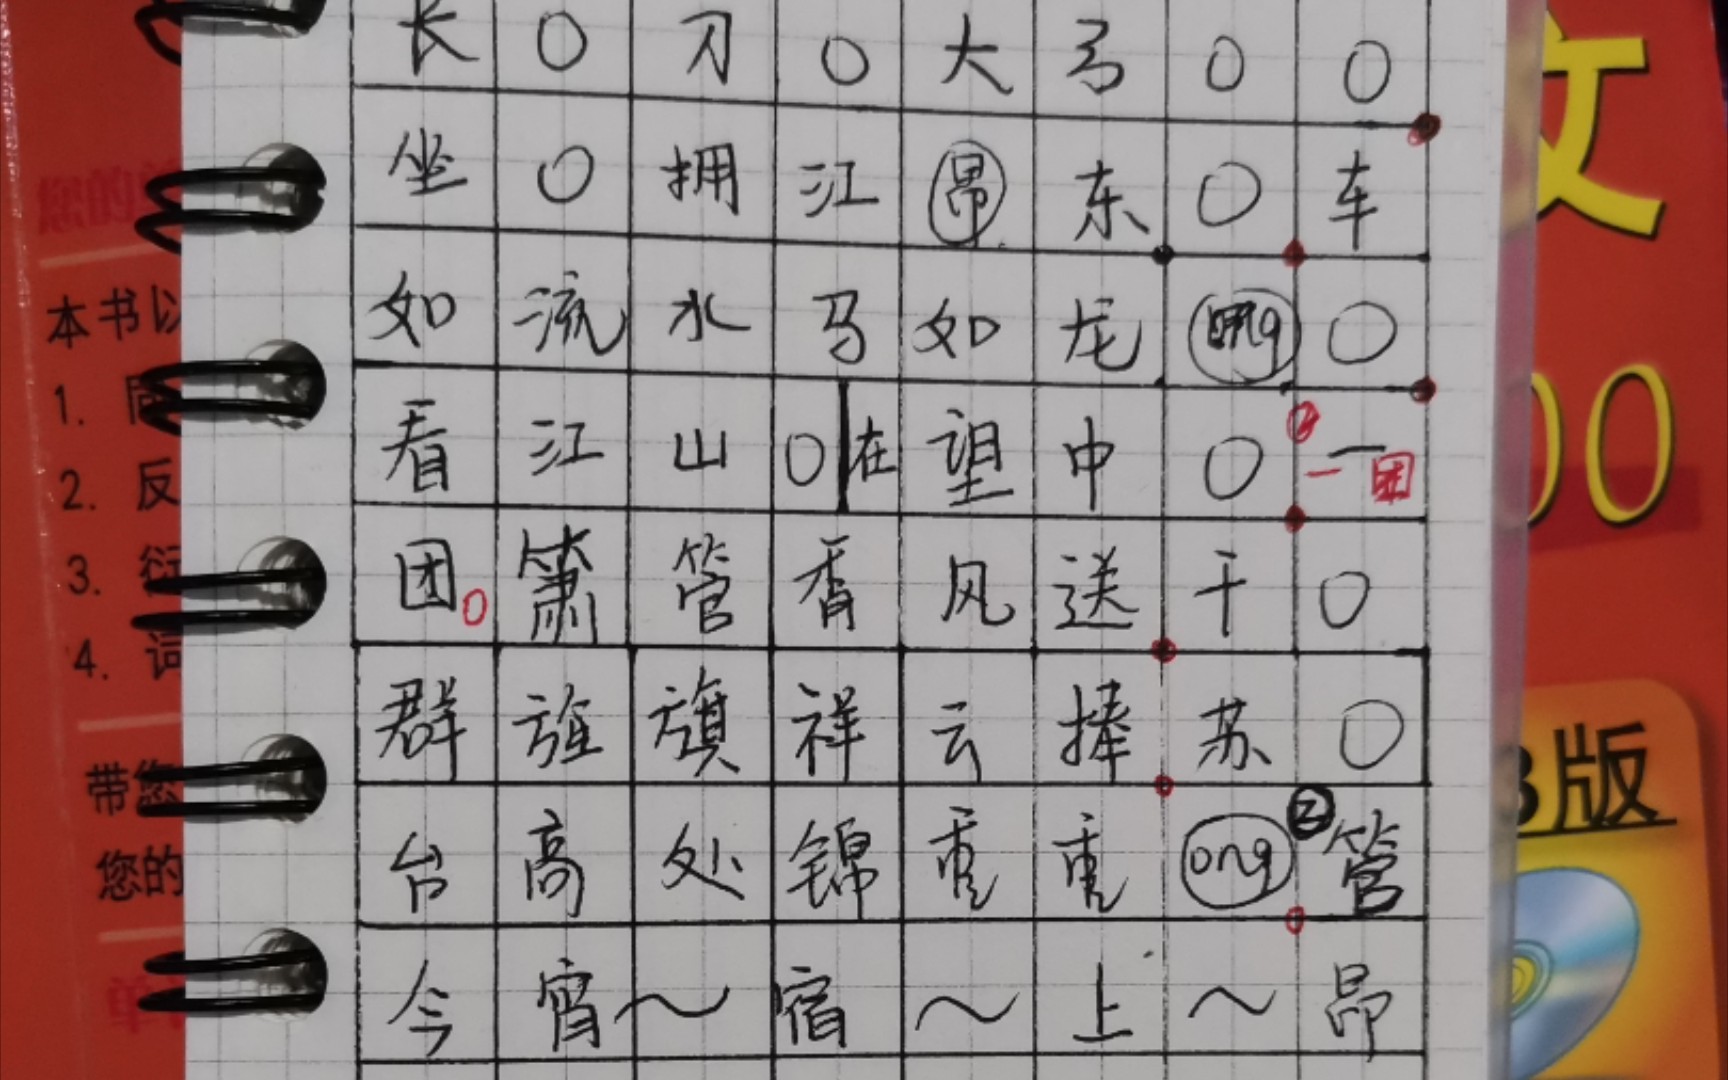 长 〇 刀 〇 大 弓 〇 〇
坐 〇 拥 江 昂 东 〇 车
如 流 水 马 如 龙 〇
看 江 山 〇 在 望 中 〇 一 一 团
团 〇 箫 管 香 风 送 千 〇
群 旌 旗 祥 云 捧 苏 〇
台 高 处 锦 重 重 ong ② 管
今 宵 ~ 宿 ~ 上 ~ 昂
本书以
1.
2. 反
3. 衍
4. 词
带您
您的
文
00
版